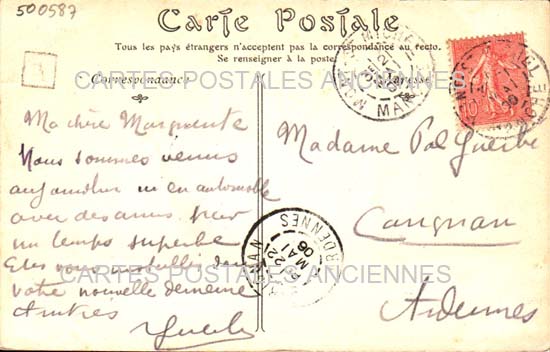 500587
Carte Postale
Tous les pays étrangers n'acceptent pas la correspondance au recto.
Se renseigner à la poste.
Correspondance
Adresse
Ma chère Marguerite
Nous sommes venus
aujourd'hui ici en automobile
avec des amis par
un temps superbe
Etes vous installés dans
votre nouvelle demeure
Amitiés
Madame Pol
Carignan
Ardennes
CARIGNAN
ARDENNES
22
MAI
06
10
CARTES POSTALES ANCIENNES
CARTES POSTALES ANCIENNES